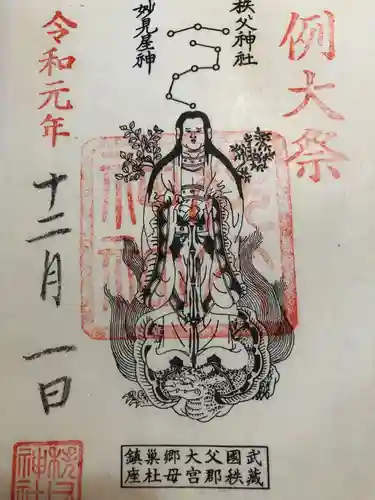 例大祭
秩父神社
妙見星神
令和元年
十二月一日
武蔵
國秩
父郡
大宮
郷母
巣社
鎮座